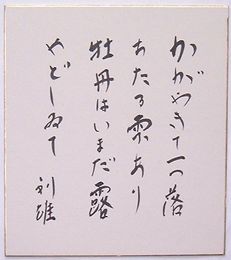 かがやきて一つ落
ちたる雫あり
牡丹はいまだ露
やどしゐて 利雄